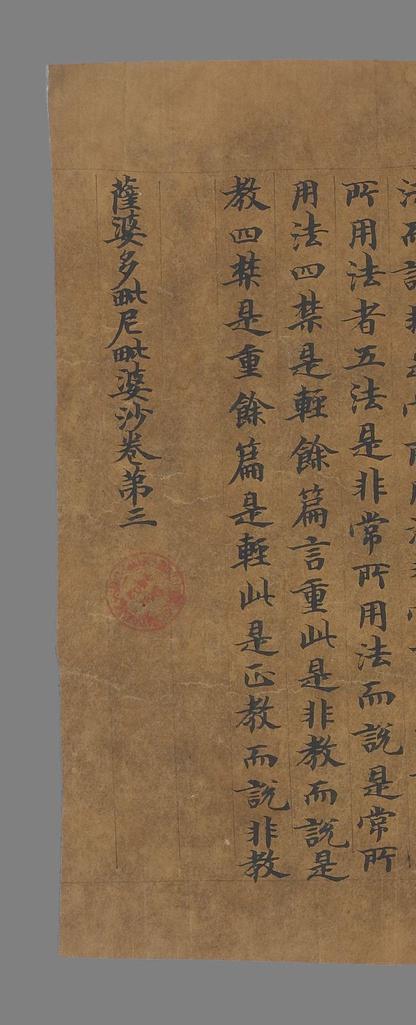 法而說
所用法者五法是非常所用法而說是常所
用法四禁是輕餘篇言重此是非教而說是
教四禁是重餘篇是輕此是正教而說非教
薩婆多毗尼毗婆沙卷第三